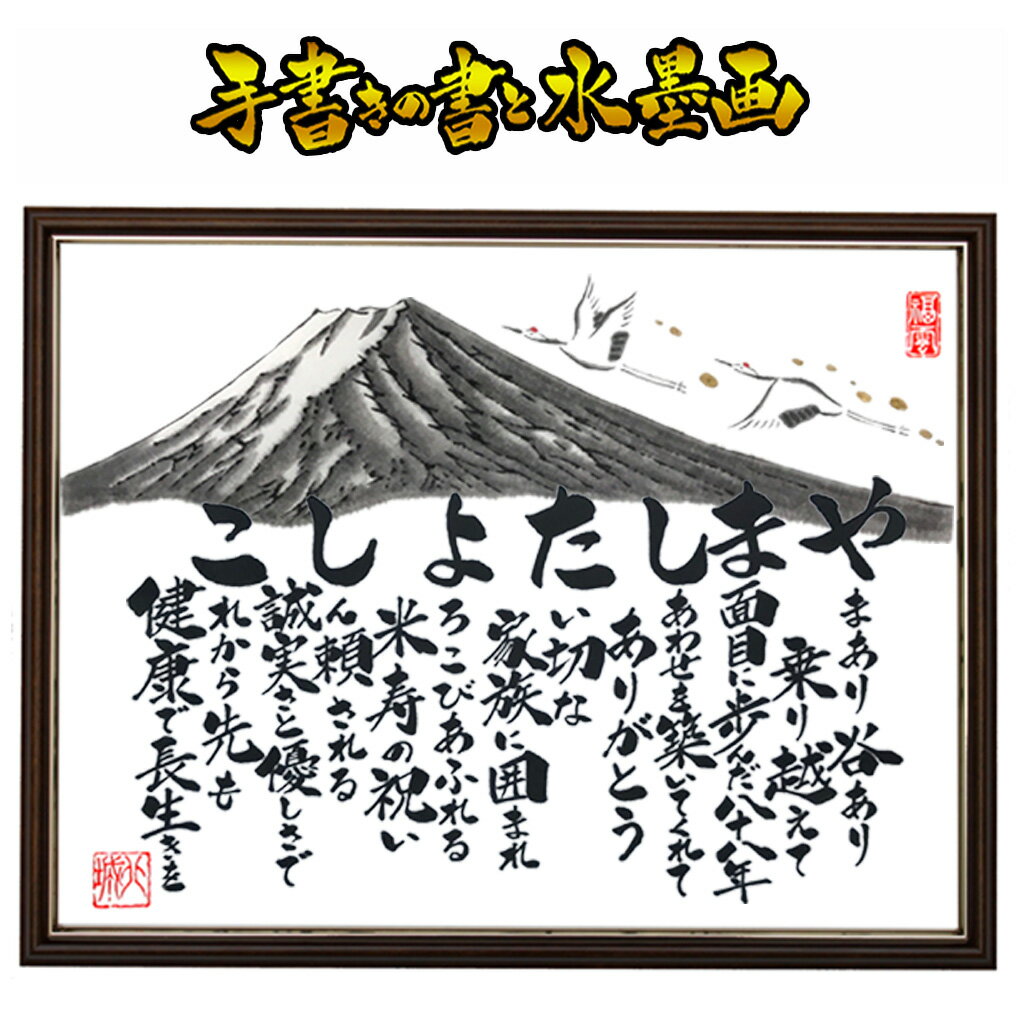 手書きの書と水墨画
福雲
やまあり谷あり
乗り越えて
ま面目に歩んだ八十八年
しあわせを築いてくれて
ありがとう
たい切な
家族に囲まれ
よろこびあふれる
米寿の祝い
しん頼される
誠実さと優しさで
これから先も
健康で長生きを